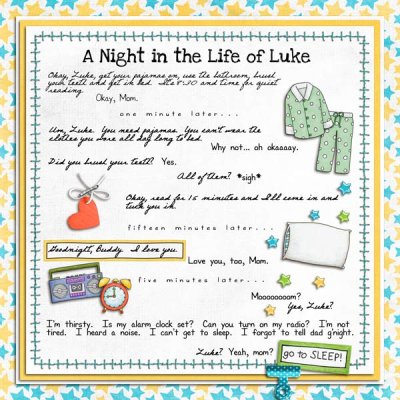 A Night in the Life of Luke
Okay, Luke, get your pajamas on, use the bathroom, brush
your teeth and get in bed. It's 8:30 and time for quiet
reading.
Okay, Mom.
one minute later...
Um, Luke. You need pajamas. You can't wear the
clothes you wore all day long to bed.
Why not... oh okaaaay.
Did you brush your teeth? Yes.
All of them? *sigh*
Okay, read for 15 minutes and I'll come in and
tuck you in.
fifteen minutes later...
Goodnight, Buddy. I love you.
Love you, too, Mom.
five minutes later...
Moooooooom?
Yes, Luke?
I'm thirsty. Is my alarm clock set? Can you turn on my radio? I'm not
tired. I heard a noise. I can't get to sleep. I forgot to tell dad g'night.
Luke? Yeah, mom?
go to SLEEP!